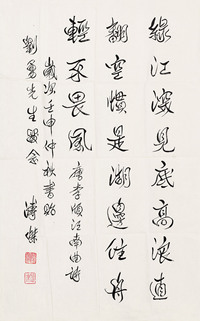 綠江深見底高浪直
翻空慣是湖邊住舟
輕不畏風 唐李頎江南曲詩
歲次壬申仲秋書贈
劉勇先生留念 溥傑